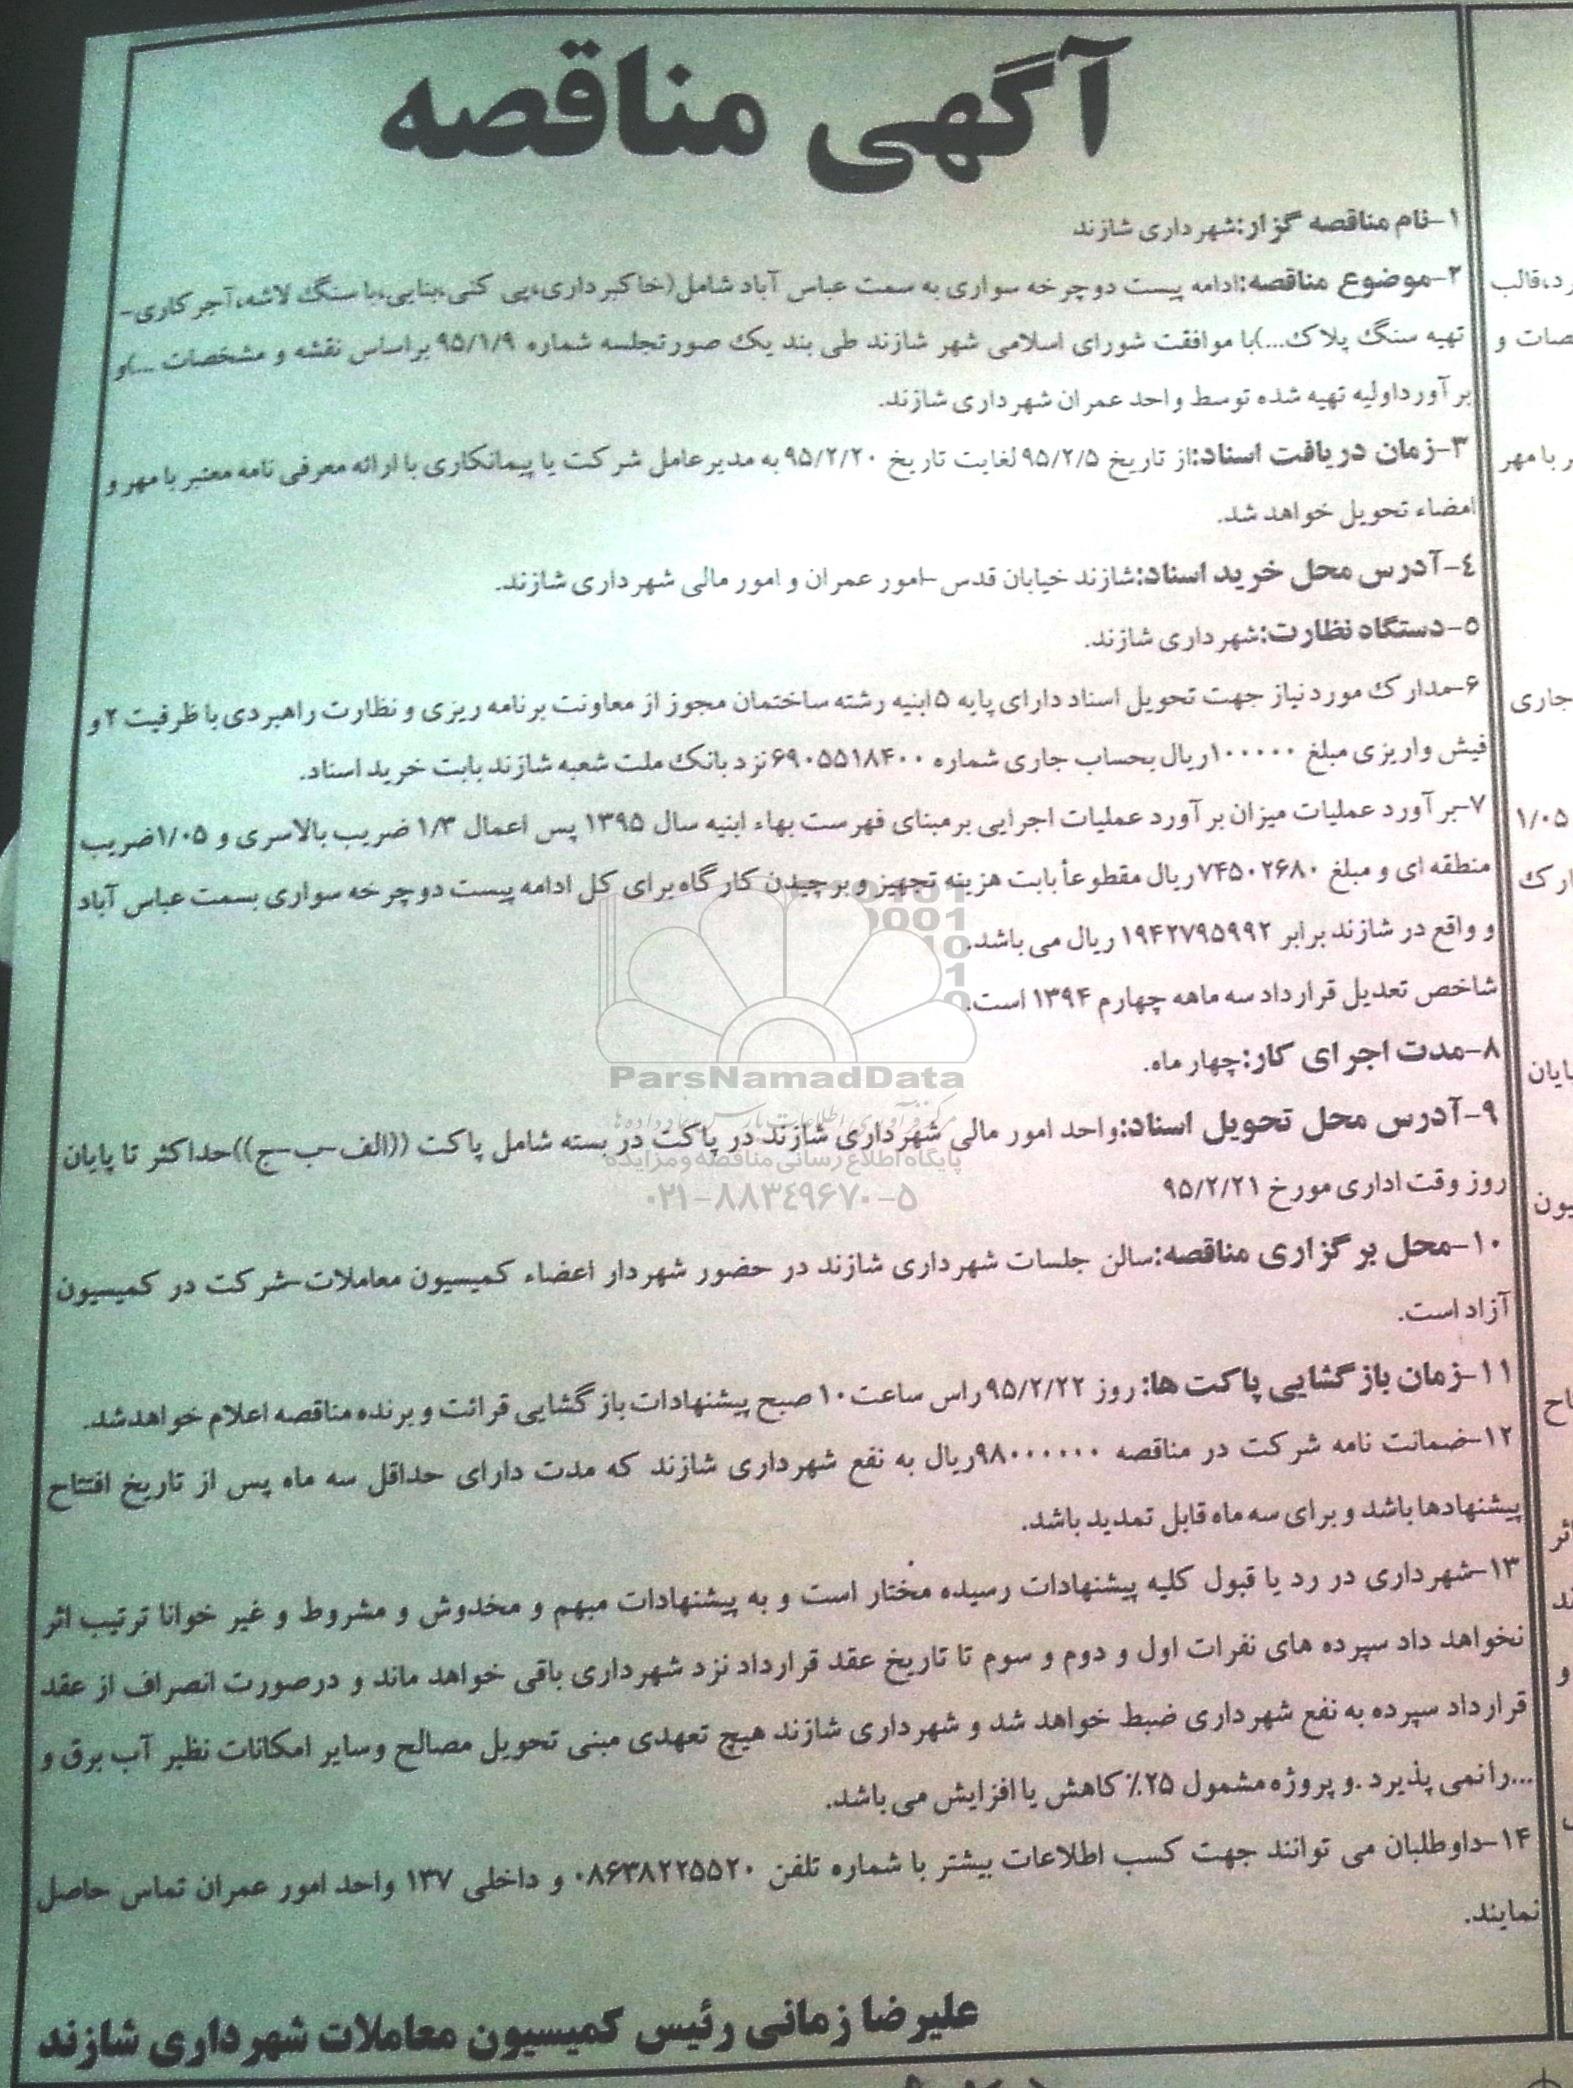 آگهی مناقصه
۱-نام مناقصه گزار:شهرداری شازند
۲-موضوع مناقصه:ادامه پیست دوچرخه سواری به سمت عباس آباد شامل(خاکبرداری،پی کنی،بنایی،با سنگ لاشه،آجرکاری-
تهیه سنگ پلاک...)با موافقت شورای اسلامی شهر شازند طی بند یک صورتجلسه شماره ۹۵/۱/۹ براساس نقشه و مشخصات ...)و
برآورداولیه تهیه شده توسط واحد عمران شهرداری شازند.
۳-زمان دریافت اسناد:از تاریخ ۹۵/۲/۵ لغایت تاریخ ۹۵/۲/۲۰ به مدیرعامل شرکت یا پیمانکاری با ارائه معرفی نامه معتبر با مهر و
امضاء تحویل خواهد شد.
۴-آدرس محل خرید اسناد:شازند خیابان قدس-امور عمران و امور مالی شهرداری شازند.
۵-دستگاه نظارت:شهرداری شازند.
۶-مدارک مورد نیاز جهت تحویل اسناد دارای پایه ۵ ابنیه رشته ساختمان مجوز از معاونت برنامه ریزی و نظارت راهبردی با ظرفیت ۲ و
فیش واریزی مبلغ ۱۰۰۰۰۰ ریال بحساب جاری شماره ۶۹۰۵۵۱۸۴۰۰ نزد بانک ملت شعبه شازند بابت خرید اسناد.
۷-برآورد عملیات میزان برآورد عملیات اجرایی برمبنای فهرست بهاء ابنیه سال ۱۳۹۵ پس اعمال ۱/۳ ضریب بالاسری و ۱/۰۵ ضریب
منطقه ای و مبلغ ۷۴۵۰۲۶۸۰ ریال مقطوعاً بابت هزینه تجهیز و برچیدن کارگاه برای کل ادامه پیست دوچرخه سواری بسمت عباس آباد
و واقع در شازند برابر ۱۹۴۲۷۹۵۹۹۲ ریال می باشد.
شاخص تعدیل قرارداد سه ماهه چهارم ۱۳۹۴ است.
۸-مدت اجرای کار:چهار ماه.
ParsNamadData
۹-آدرس محل تحویل اسناد:واحد امور مالی شهرداری شازند در پاکت در بسته شامل پاکت ((الف-ب-ج))حداکثر تا پایان
پایگاه اطلاع رسانی مناقصه و مزایده
روز وقت اداری مورخ ۹۵/۲/۲۱
۰۲۱-۸۸۳۴۹۶۷۰-۵
۱۰-محل برگزاری مناقصه:سالن جلسات شهرداری شازند در حضور شهردار اعضاء کمیسیون معاملات-شرکت در کمیسیون
آزاد است.
۱۱-زمان بازگشایی پاکت ها: روز ۹۵/۲/۲۲ راس ساعت ۱۰ صبح پیشنهادات بازگشایی قرائت و برنده مناقصه اعلام خواهدشد.
۱۲-ضمانت نامه شرکت در مناقصه ۹۸۰۰۰۰۰۰ ریال به نفع شهرداری شازند که مدت دارای حداقل سه ماه پس از تاریخ افتتاح
پیشنهادها باشد و برای سه ماه قابل تمدید باشد.
۱۳-شهرداری در رد یا قبول کلیه پیشنهادات رسیده مختار است و به پیشنهادات مبهم و مخدوش و مشروط و غیر خوانا ترتیب اثر
نخواهد داد سپرده های نفرات اول و دوم و سوم تا تاریخ عقد قرارداد نزد شهرداری باقی خواهد ماند و درصورت انصراف از عقد
قرارداد سپرده به نفع شهرداری ضبط خواهد شد و شهرداری شازند هیچ تعهدی مبنی تحویل مصالح وسایر امکانات نظیر آب برق و
...را نمی پذیرد .و پروژه مشمول ۲۵٪ کاهش یا افزایش می باشد.
۱۴-داوطلبان می توانند جهت کسب اطلاعات بیشتر با شماره تلفن ۰۸۶۳۸۲۲۵۵۲۰ و داخلی ۱۳۷ واحد امور عمران تماس حاصل
نمایند.
علیرضا زمانی رئیس کمیسیون معاملات شهرداری شازند